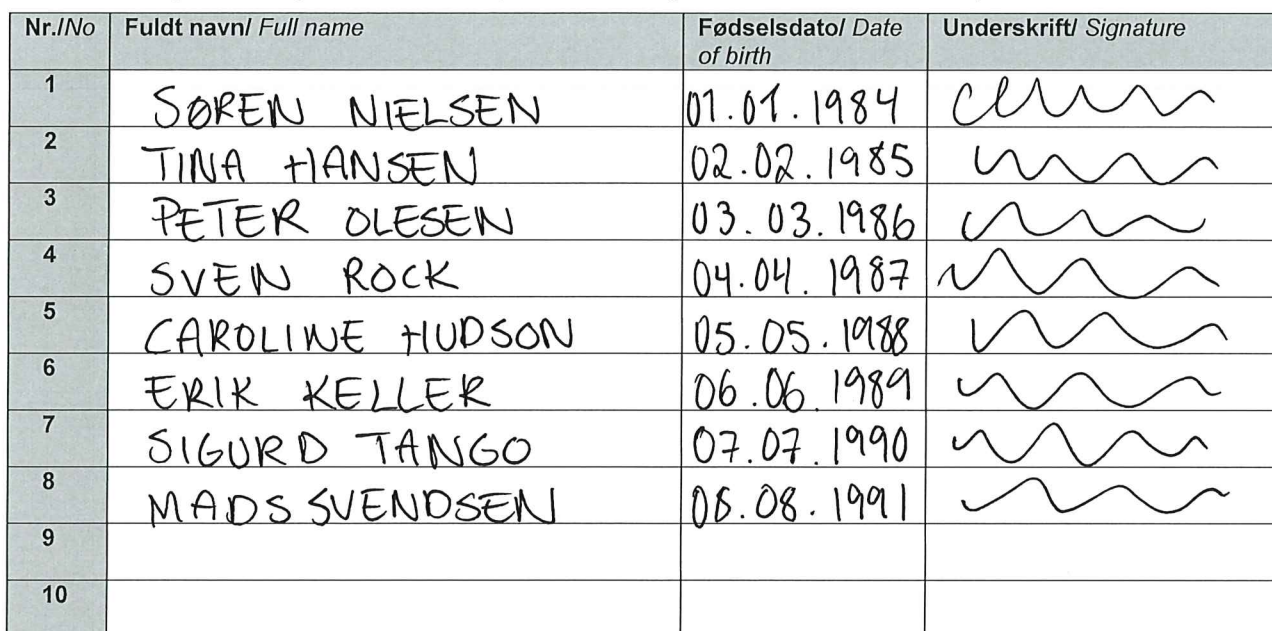 Nr./No Fuldt navn/ Full name Fødselsdato/ Date of birth Underskrift/ Signature
1 SØREN NIELSEN 01.01.1984
2 TINA HANSEN 02.02.1985
3 PETER OLESEN 03.03.1986
4 SVEN ROCK 04.04.1987
5 CAROLINE HUDSON 05.05.1988
6 ERIK KELLER 06.06.1989
7 SIGURD TANGO 07.07.1990
8 MADS SVENDSEN 08.08.1991
9
10